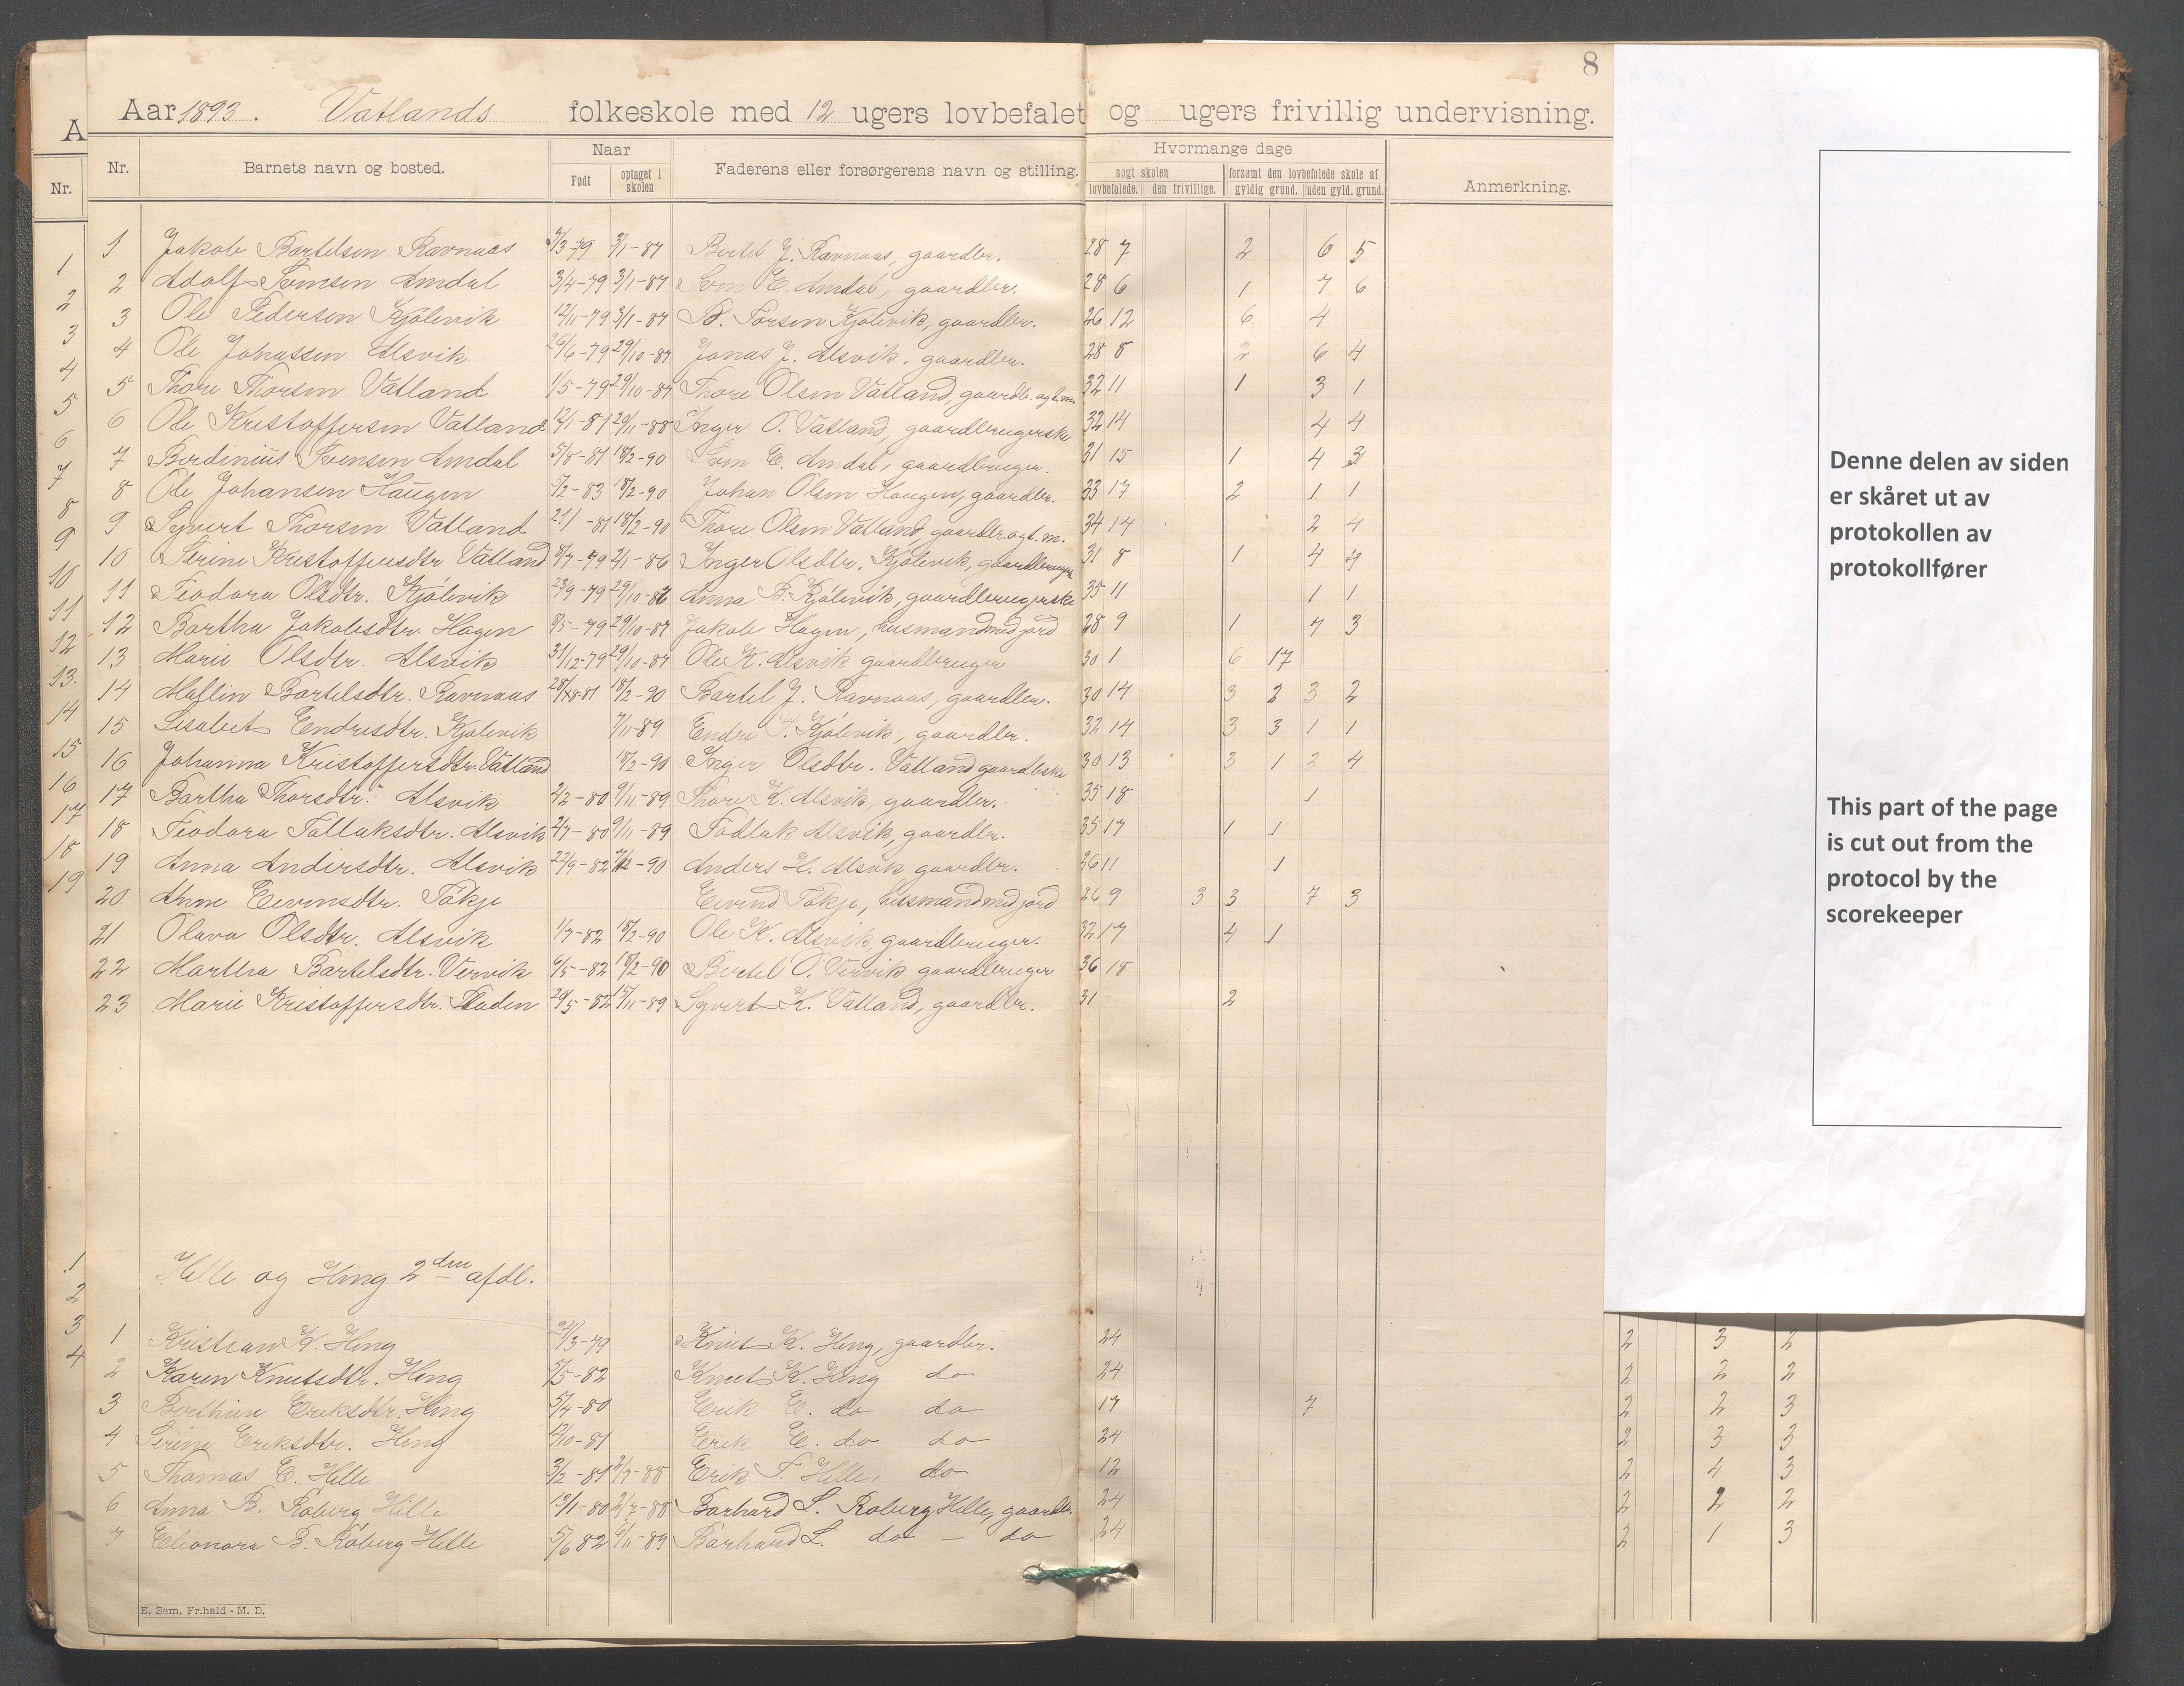 8
Aar 1893. Vatlands folkeskole med 12 ugers lovbefalet og ugers frivillig undervisning.
A
Nr.
Nr. Barnets navn og bosted. Naar Født optaget i skolen Faderens eller forsørgerens navn og stilling. Hvormange dage søgt skolen lovbefalede. den frivillige. forsømt den lovbefalede skole af gyldig grund. uden gyld. grund. Anmerkning.
1 Jakob Bartelsen Ravnaas 4/3-79 3/1-87 Bertel J. Ravnaas, gaardbr. 28 7 2 6 5
2 Adolf Svensen Amdal 3/4-79 3/1-87 Sven E. Amdal, gaardbr. 28 6 1 7 6
3 Ole Pedersen Kjölevik 12/11-79 3/1-87 P. Torsen Kjölevik, gaardbr. 26 12 6 4
4 Ole Johnassen Alsvik 26/6-79 29/10-87 Jonas J. Alsvik, gaardbr. 28 8 2 6 4
5 Thore Thorsen Vatland 1/5-79 29/10-87 Thore Olsen Vatland, gaardb. agt.m. 32 11 1 3 1
6 Ole Kristoffersen Vatland 12/1-81 29/11-88 Inger O. Vatland, gaardbrugerske 32 14 4 4
7 Berdinius Svensen Amdal 5/8-81 18/2-90 Sven E. Amdal, gaardbruger. 31 15 1 4 3
8 Ole Johansen Haugen 5/2-83 18/2-90 Johan Olsen Haugen, gaardbr. 33 17 2 1 1
9 Syvert Thorsen Vatland 21/1-81 18/2-90 Thore Olsen Vatland, gaardbr. agt. m. 34 14 2 4
10 Serine Kristoffersdtr Vatland 8/7-79 2/1-86 Inger Olsdtr. Kjölevik, gaardbruger 31 8 1 4 4
11 Teodora Olsdtr. Kjölevik 23/9-79 29/10-87 Anna B. Kjölevik, gaardbrugerske 35 11 1 1
12 Bertha Jakobsdtr. Hagen 8/5-79 29/10-87 Jakob Hagen, husmand med jord 28 9 1 7 3
13 Marie Olsdtr. Alsvik 31/12-79 29/10-87 Ole K. Alsvik gaardbruger 30 1 6 17
14 Mallin Bartelsdtr. Ravnaas 28/12-81 18/2-90 Bartel J. Ravnaas, gaardbr. 30 14 3 2 3 2
15 Lisabet Endresdtr. Kjölevik 7/11-89 Endre Kjölevik, gaardbr. 32 14 3 3 1 1
16 Johanna Kristoffersdtr. Vatland 18/2-90 Inger Olsdtr. Vatland gaardbske 30 13 3 1 3 4
17 Bertha Thorsdtr. Alsvik 2/2-80 9/11-89 Thore K. Alsvik, gaardbr. 35 18 1
18 Teodora Tallaksdtr. Alsvik 2/7-80 9/11-89 Tadlak Alsvik, gaardbr. 35 17 1 1
19 Anna Andersdtr. Alsvik 27/9-82 7/2-90 Anders H. Alsvik gaardbr. 36 11 1
20 Anne Eevensdtr. Tökje Eevind Tökje, husmand med jord 26 9 3 3 7 3
21 Olava Olsdtr. Alsvik 1/7-82 18/2-90 Ole K. Alsvik, gaardbruger. 32 17 4 1
22 Martha Bartelsdtr. Vervik 6/5-82 18/2-90 Bertel O. Vervik gaardbruger 36 18
23 Marie Kristoffersdtr. 29/5-82 15/11-89 Syvert K. Vatland, gaardbr. 31 2
1
2
3
4
5
6
7
8
9
10
11
12
13.
14
15
16
17
18
19
1
2
3
4
Helle og Heng 2den afdl.
1 Kristian K. Heng 24/3-79 Knut K. Heng, gaardbr. 24
2 Karen Knutsdtr. Heng 5/5-82 Knut K. Heng do 24
3 Berthine Eriksdtr. Heng 5/4-80 Erik E. do do 17 7
4 Serine Eriksdtr. Heng 12/10-81 Erik E. do do 24
5 Thomas E. Helle 3/2-81 2/7-88 Erik T. Helle, do 12
6 Anna B. Roberg Helle 13/1-80 2/7-88 Barhard L. Roberg Helle, gaardbr. 24
7 Eleonora B. Roberg Helle 5/6 82 6/11-89 Barhard L. do - do 24
2 3 2
2 2 2
2 2 3
2 3 3
2 4 3
2 2 2
2 1 3
E. Sem, Fr.hald - M. D.
Denne delen av siden
er skåret ut av
protokollen av
protokollfører
This part of the page
is cut out from the
protocol by the
scorekeeper